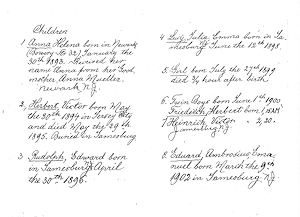 Children
1 Anna Helena born in Newark
January the
30th 1893. Received her
name Anna from her God
mother, Anna Mueller.
Newark N.J.
2. Herbert Victor born May
the 30th 1894 in Jersey City
and died May the 29th
1895. Buried in Jamesburg
3. Rudolph, Edward born
in Jamesburg N.J. April
the 30th 1896.
4 Emma born in Ja-
mesburg June the 12th 1898.
5. Girl born July the 27th 1899
died 3/4 hour after birth.
6. Twin Boys born June 1st 1900
Friedrich Herbert born
Heinrich Victor " 2,30.
Jamesburg N.J.
8. Eduard, Ambrosius, Ema-
nuel born March the 9th
1902 in Jamesburg N.J.